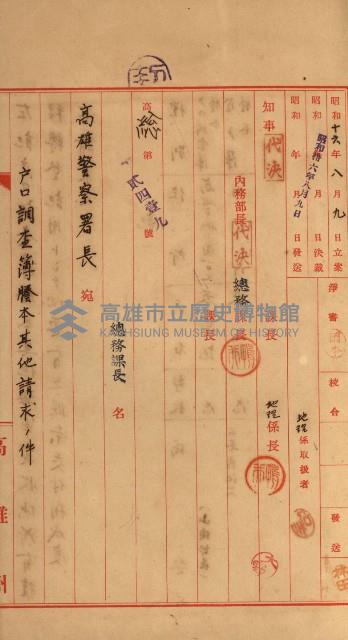 昭和十六年八月九日立案
昭和 年 月 日決裁
昭和 年 月 日發送
昭和拾六年八月九日
淨書
校合
發送
地理係取扱者
知事
代決
內務部長
代決
總務課長
課長
地理係長
高總第貳四壹九號
總務課長名
高雄警察署長宛
戶口調查簿謄本其他請求ノ件
高雄州
高雄市立歷史博物館
KAOHSIUNG MUSEUM OF HISTORY